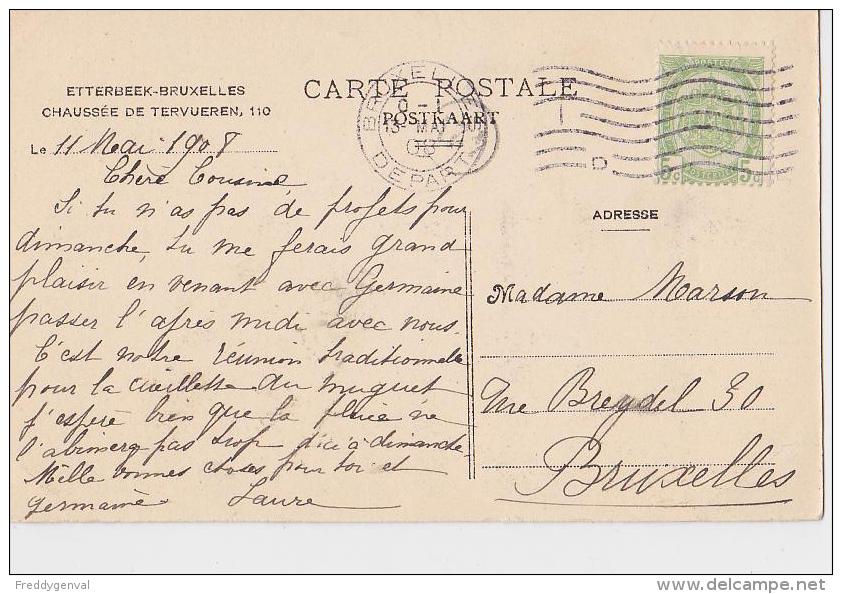 ETTERBEEK-BRUXELLES
CHAUSSÉE DE TERVUEREN, 110
CARTE POSTALE
POSTKAART
BRUXELLES
MAI
08
DEPART
D
POSTES
5c 5c
Le 11 Mai 1908
Chère Cousine
Si tu n'as pas de projets pour
dimanche, tu me ferais grand
plaisir en venant avec Germaine
passer l'après midi avec nous.
C'est notre réunion traditionnelle
pour la cueillette du muguet
j'espère bien que la pluie ne
l'abimera pas trop d'ici à dimanche.
Mille bonnes choses pour toi et
Germaine Laure
ADRESSE
Madame Marson
Rue Breydel 30
Bruxelles
Freddygenval
delcampe.net